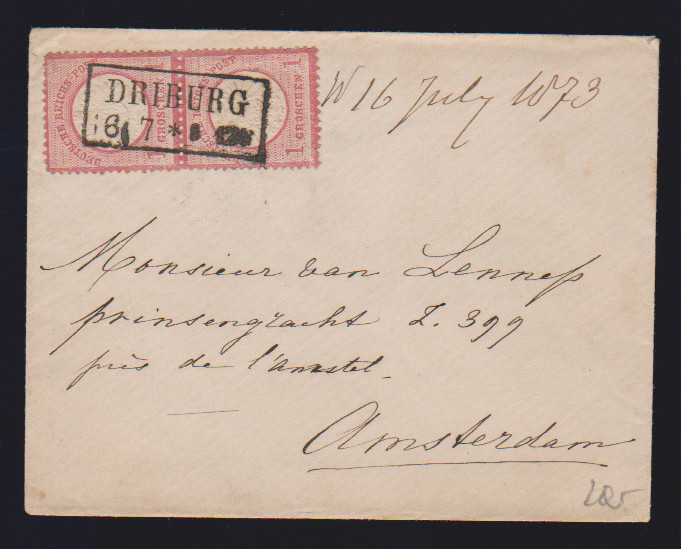 DEUTSCHE REICHS-POST
1 GROSCHEN 1
DRIBURG
16 7 *
16 July 1873
Monsieur van Lennep
prinsengracht Z. 399
près de l'amstel
Amsterdam